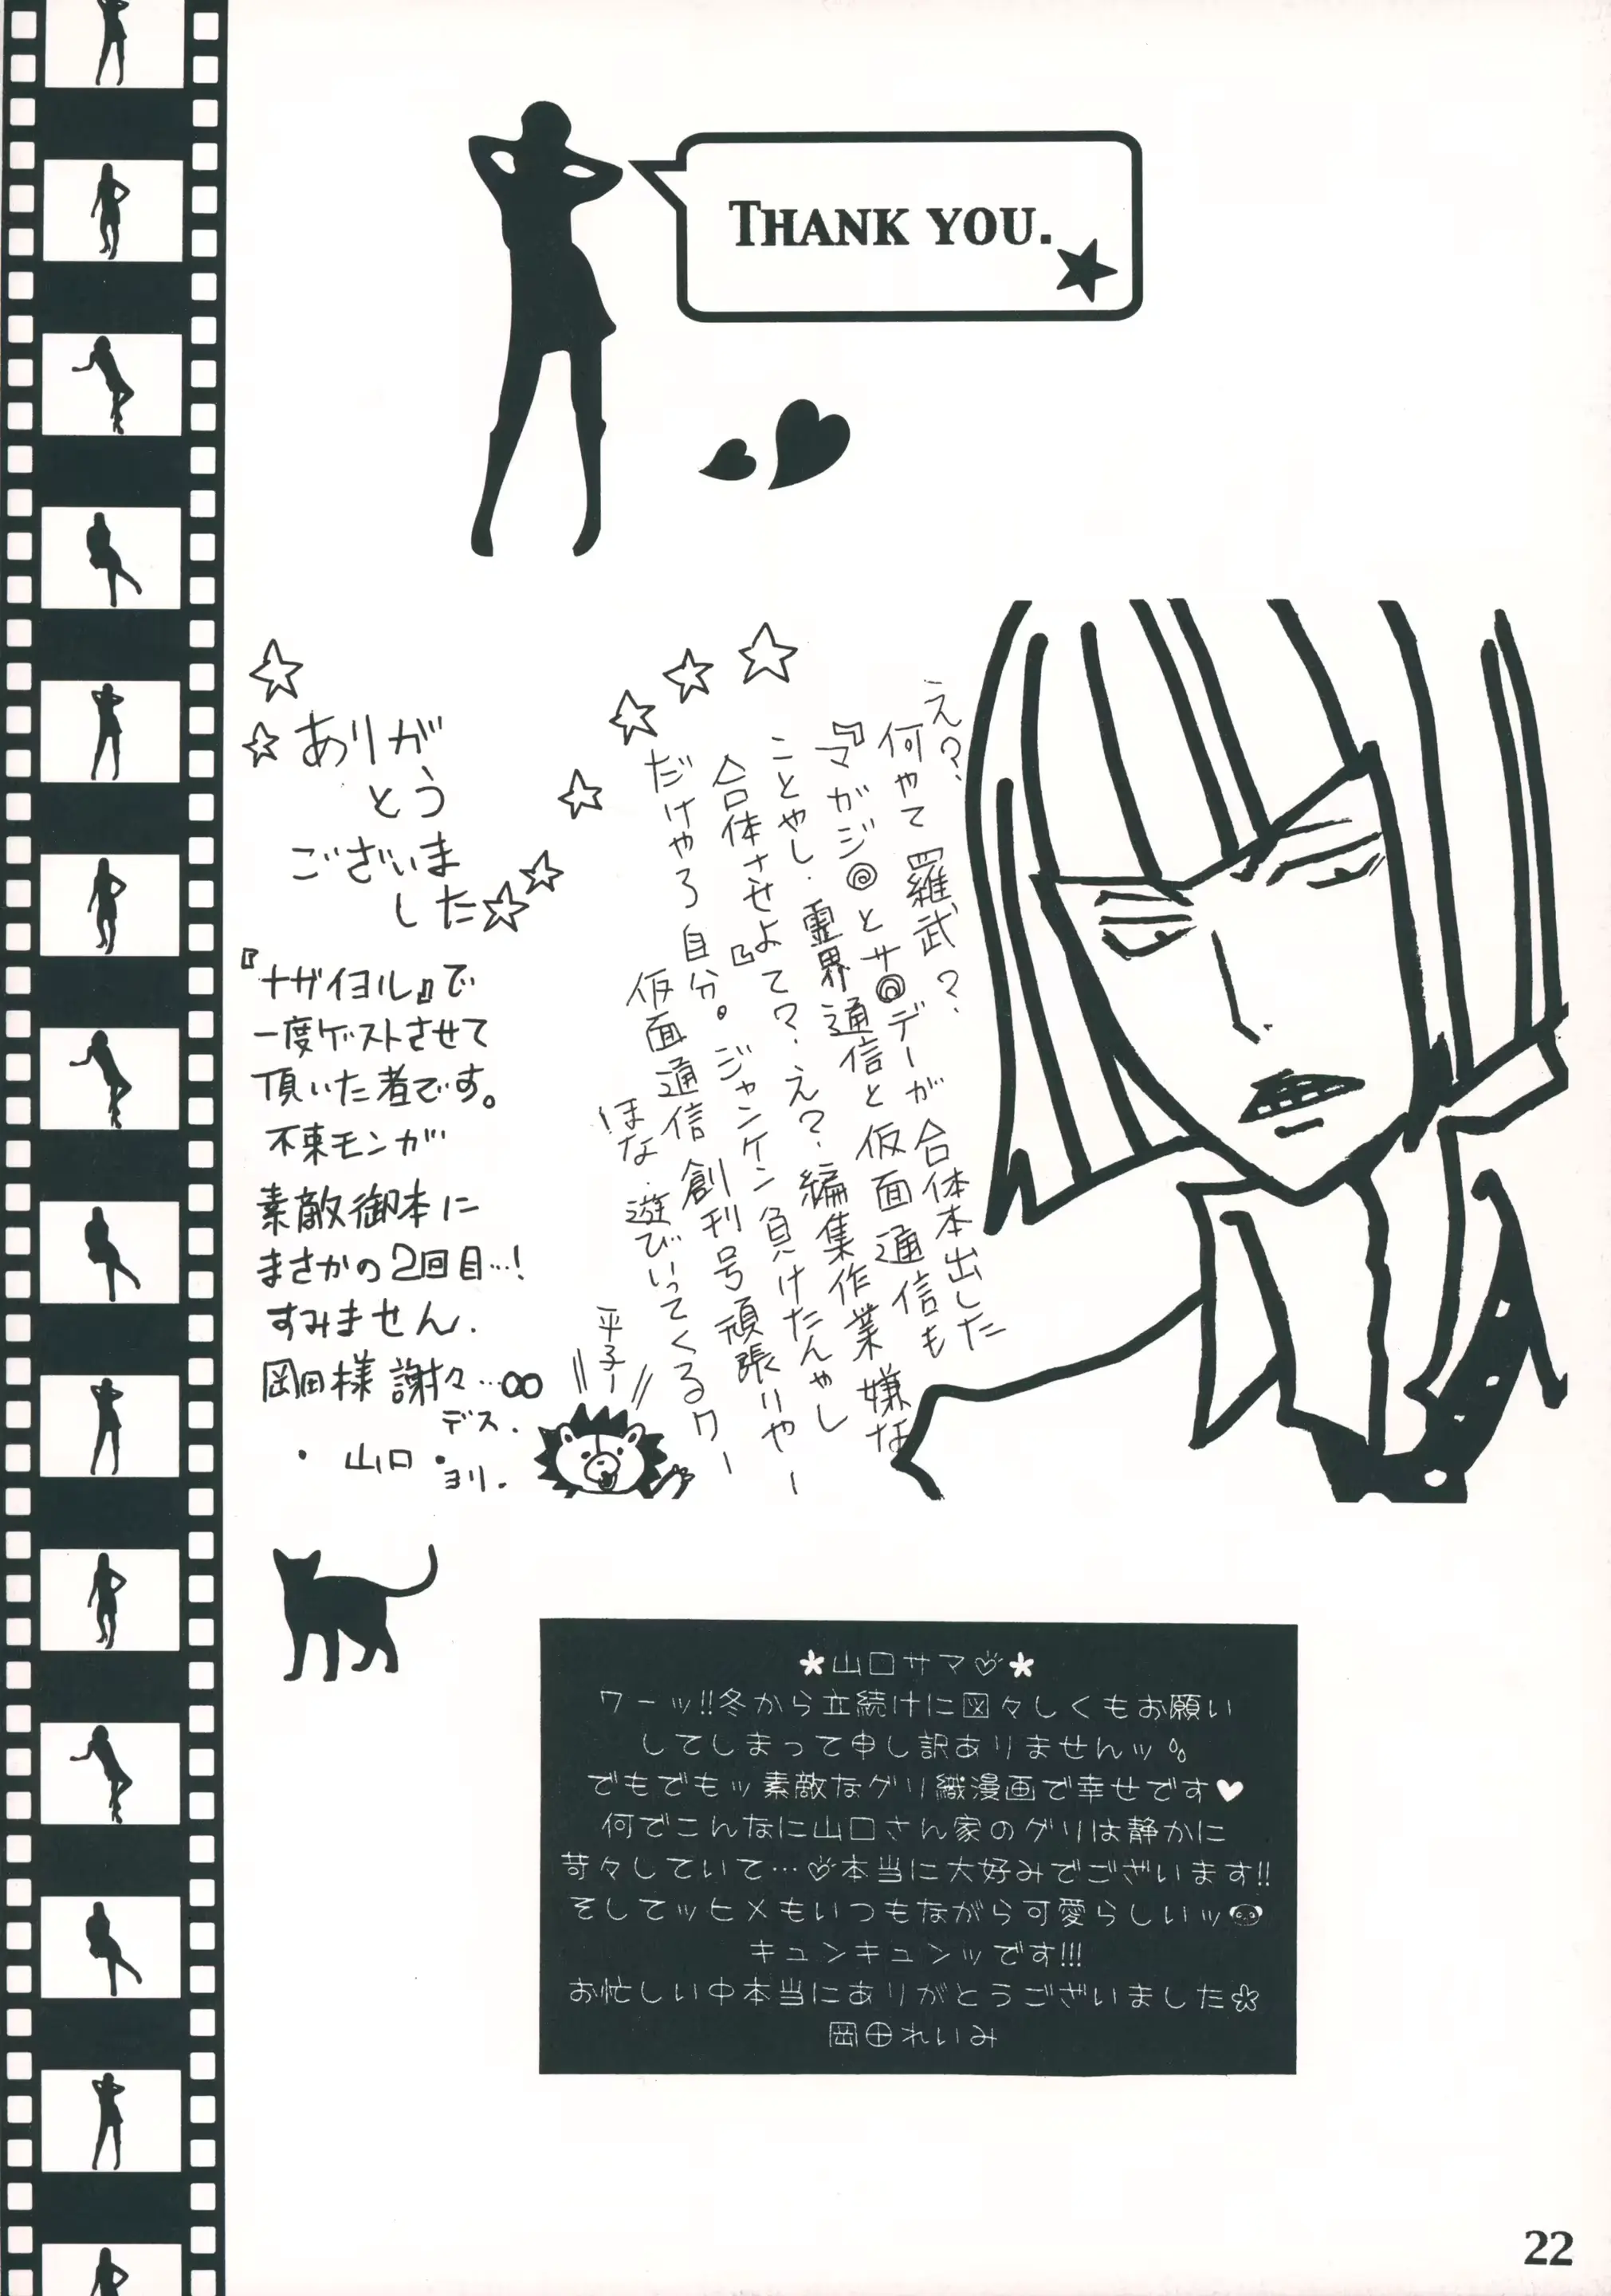 THANK YOU.
え?、
何やて 羅武?、
『マガジ◎とサ◎デーが合体本出した
ことやし、霊界通信と仮面通信も
合体させよ』て?、え?、編集作業嫌な
だけやろ自分。ジャンケン負けたんやし
仮面通信 創刊号頑張りやー
ほな、遊びいってくるワー
平子ー
ありが
とう
ございま
した
『ナザイヨル』で
一度ゲストさせて
頂いた者です。
不束モンが
素敵御本に
まさかの2回目…!
すみません.
岡田様 謝々…∞
デス.
・山口・
ヨリ.
*山口サマ♡*
ワーッ!!冬から立続けに図々しくもお願い
してしまって申し訳ありませんッ
でもでもッ素敵なグリ織漫画で幸せです♥
何でこんなに山口さん家のグリは静かに
苛々していて…♡本当に大好みでございます!!
そしてッヒメもいつもながら可愛らしいッ
キュンキュンッです!!!
お忙しい中本当にありがとうございました
岡田れいみ
22